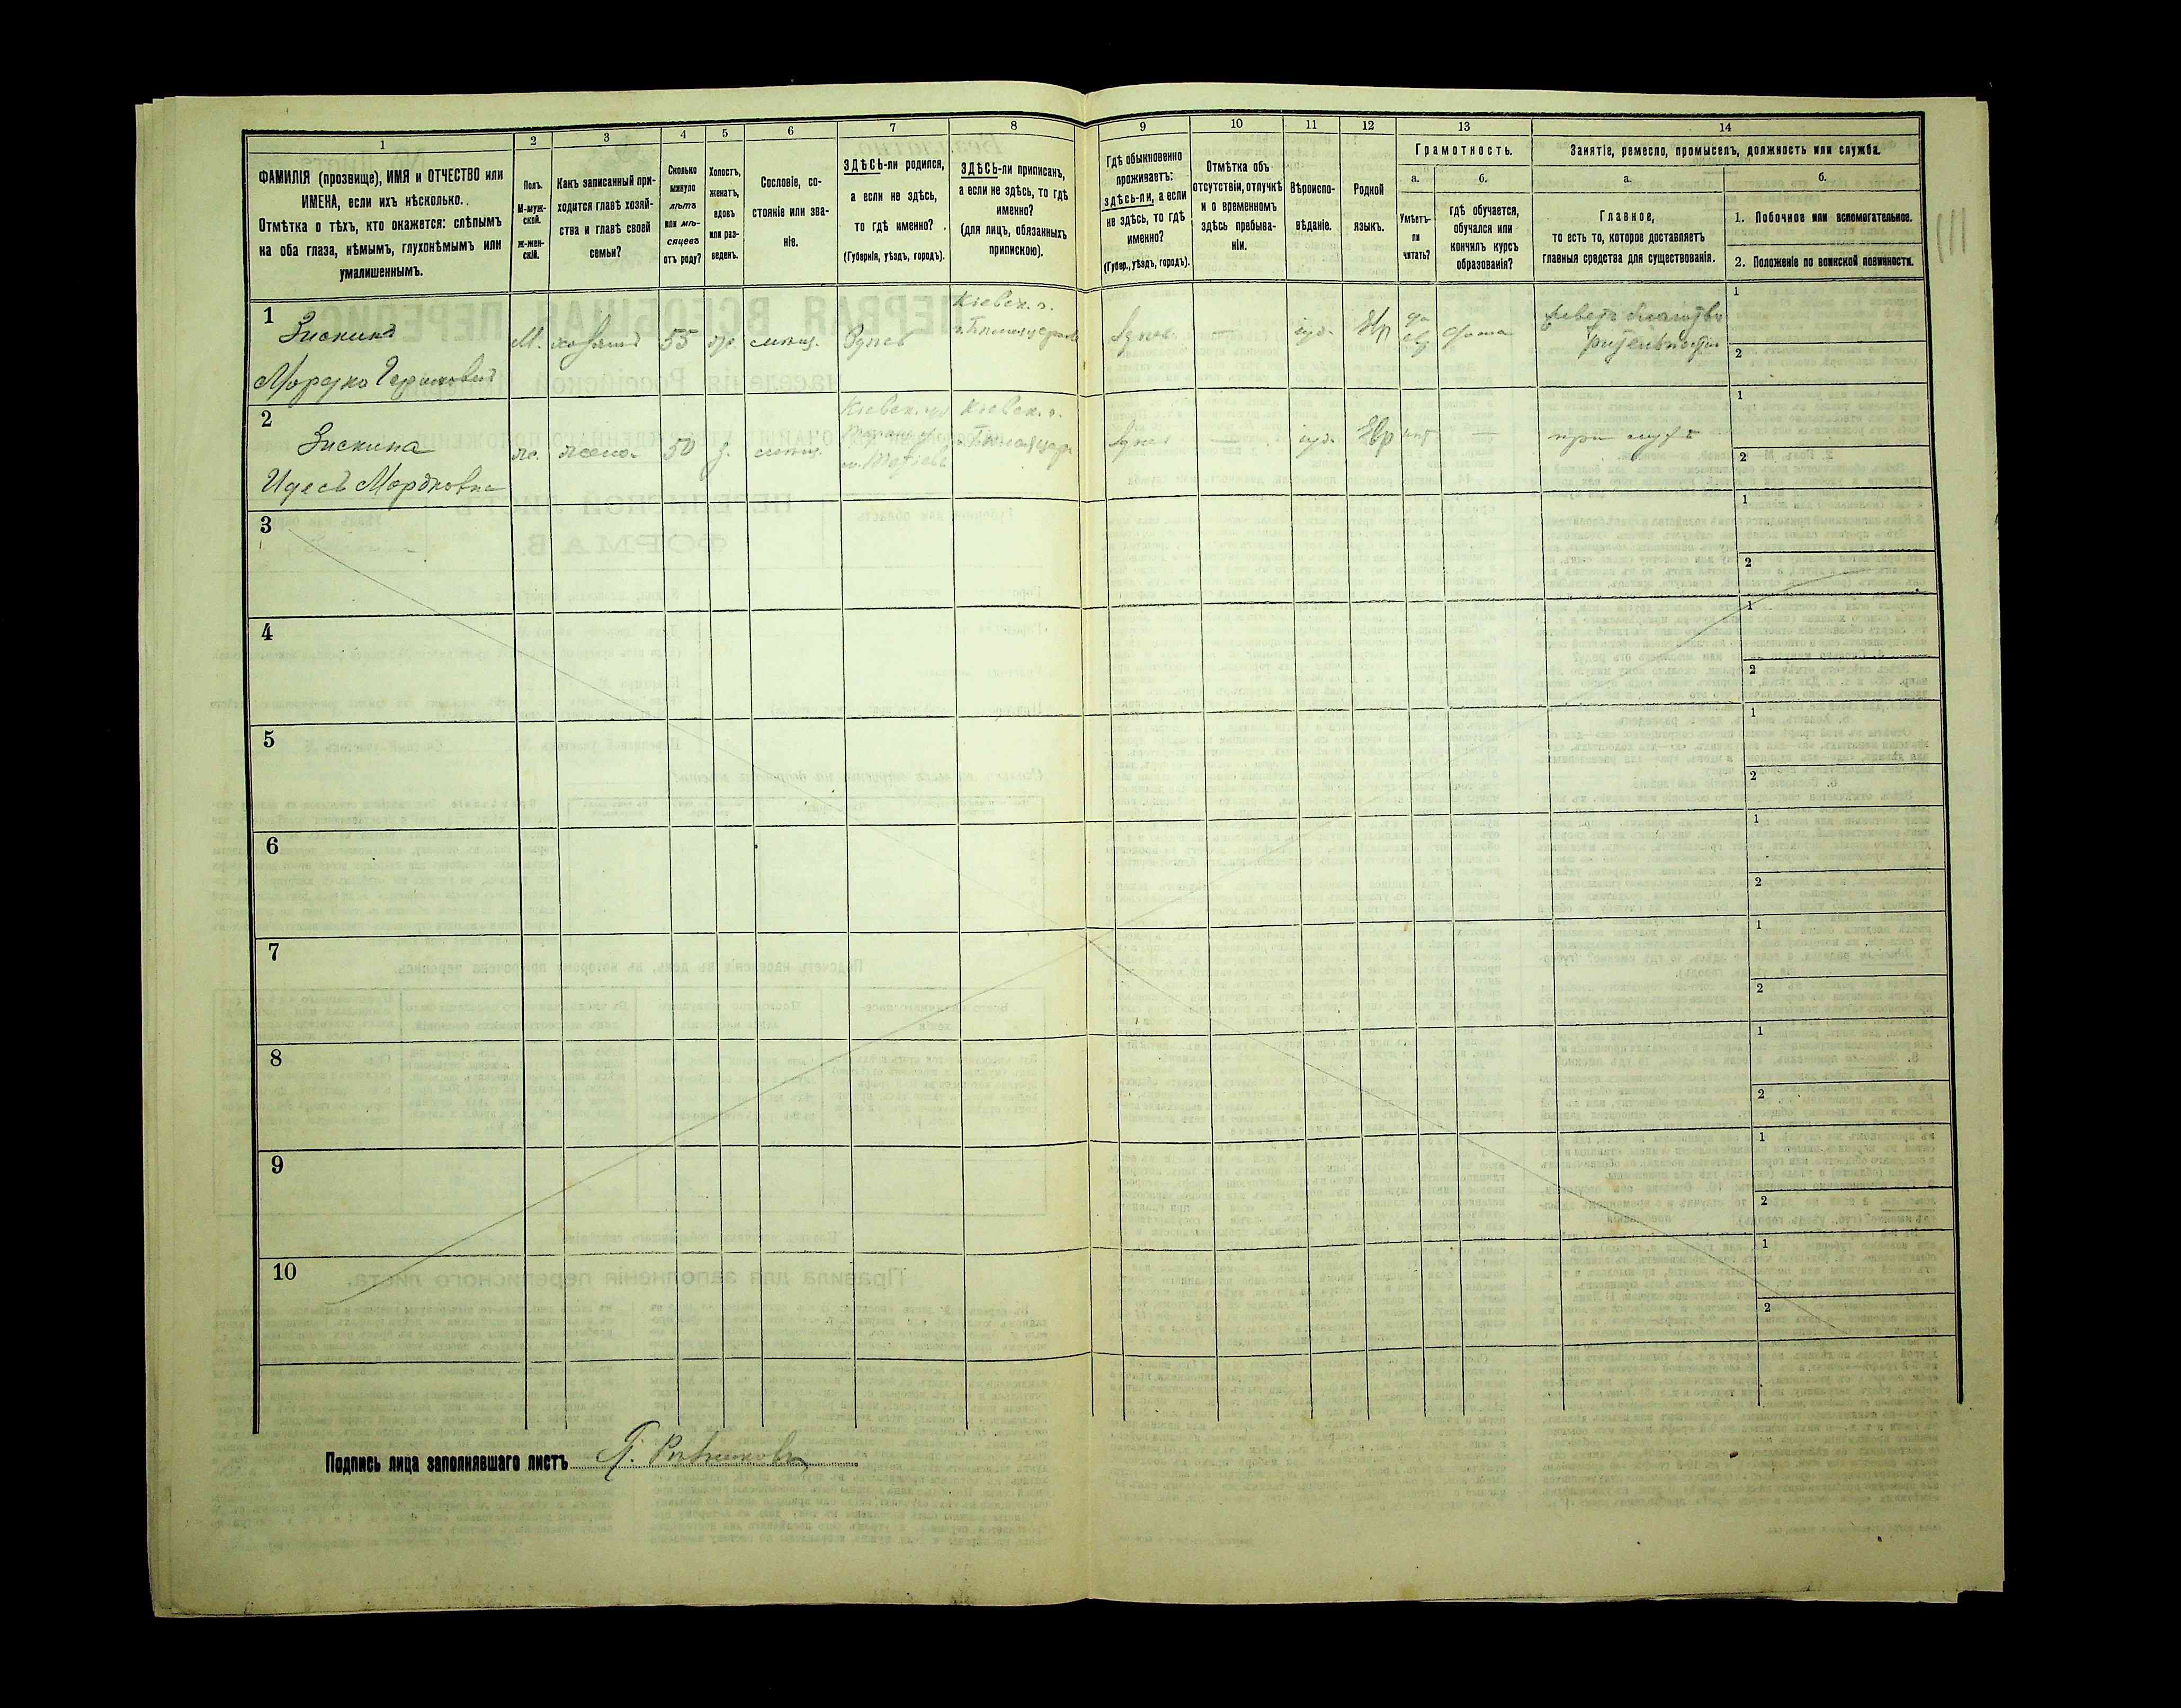 1
2
3
4
5
6
7
8
9
10
11
12
13
14
ФАМИЛІЯ (прозвище), ИМЯ и ОТЧЕСТВО или
ИМЕНА, если ихъ нѣсколько.
Отмѣтка о тѣхъ, кто окажется: слѣпымъ
на оба глаза, нѣмымъ, глухонѣмымъ или
умалишеннымъ.
Полъ.
М-муж-
ской.
ж-жен-
скій.
Какъ записанный при-
ходится главѣ хозяй-
ства и главѣ своей
семьи?
Сколько
минуло
лѣтъ
или мѣ-
сяцевъ
отъ роду?
Холостъ,
женатъ,
вдовъ
или раз-
веденъ.
Сословіе, со-
стояніе или зва-
ніе.
ЗДѢСЬ-ли родился,
а если не здѣсь,
то гдѣ именно?
(Губернія, уѣздъ, городъ).
ЗДѢСЬ-ли приписанъ,
а если не здѣсь, то гдѣ
именно?
(для лицъ, обязанныхъ
припискою).
Гдѣ обыкновенно
проживаетъ:
здѣсь-ли, а если
не здѣсь, то гдѣ
именно?
(Губер., уѣздъ, городъ).
Отмѣтка объ
отсутствіи, отлучкѣ
и о временномъ
здѣсь пребыва-
ніи.
Вѣроиспо-
вѣданіе.
Родной
языкъ.
Грамотность.
а.
Умѣетъ-
ли
читать?
б.
гдѣ обучается,
обучался или
кончилъ курсъ
образованія?
Занятіе, ремесло, промыселъ, должность или служба.
а.
Главное,
то есть то, которое доставляетъ
главныя средства для существованія.
б.
1. Побочное или вспомогательное.
2. Положеніе по воинской повинности.
1
Зискинъ
Мордко
М. хозяинъ 55 же. мѣщ. Здѣсь
Кіевск. г.
Здѣсь — іуд. Евр да
дома
1
2
2
Зискина
Идесъ Мордковна
же. жена 50 з. мѣщ.
Кіевск. г.
Здѣсь — іуд. Евр нѣт — при мужѣ
1
2
3
1
2
4
1
2
5
1
2
6
1
2
7
1
2
8
1
2
9
1
2
10
1
2
Подпись лица заполнявшаго листъ